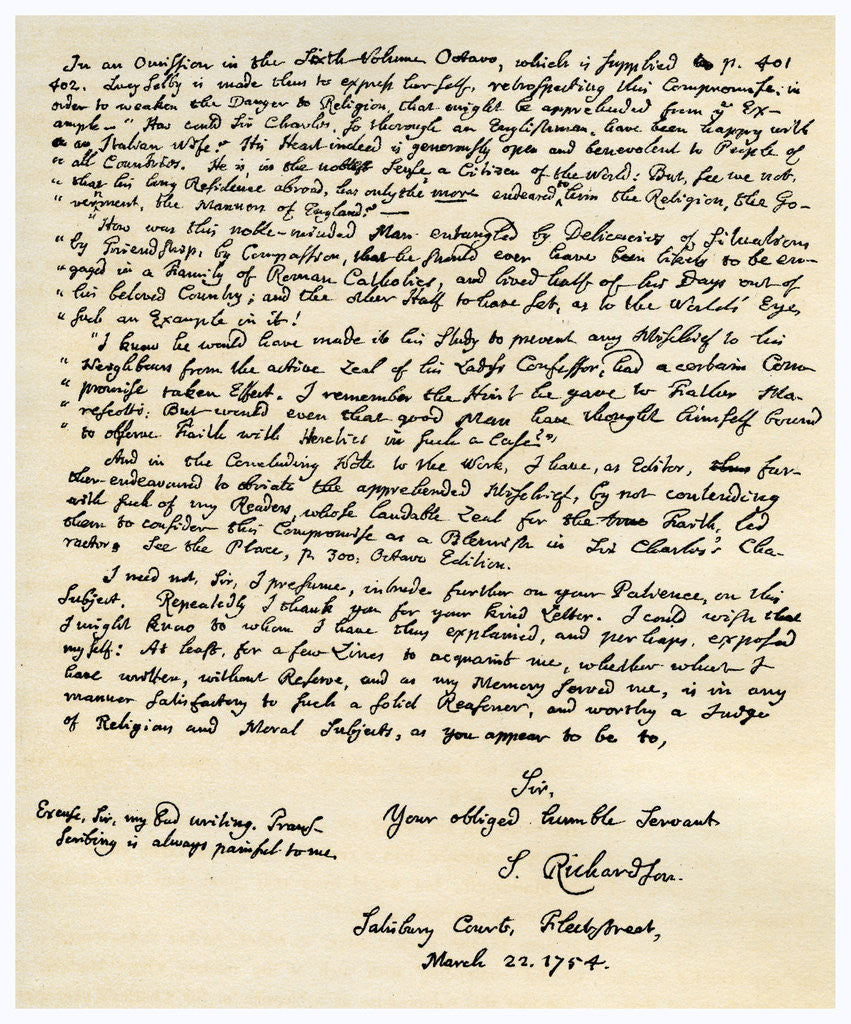 In an Omission in the Sixth Volume Octavo, which is supplied to p. 401
402. Lucy Selby is made thus to express herself, retrospecting this Compromise; in
order to weaken the Danger to Religion, that might be apprehended from ye Ex-
ample — "How could Sir Charles, so thorough an Englishman, have been happy with
" an Italian Wife? His Heart indeed is generously open and benevolent to People of
" all Countries. He is, in the noblest Sense, a Citizen of the World: But, see we not,
" that his long Residence abroad, has only the more endeared to him the Religion, the Go-
" vernment, the Manners of England? —
" How was this noble-minded Man entangled by Delicacies of Situation,
" by Friendship, by Compassion, that he should ever have been likely to be en-
" gaged in a Family of Roman Catholics, and lived half of his Days out of
" his beloved Country; and the other Half to have set, as to the World's Eye,
" such an Example in it!
" I know he would have made it his Study to prevent any Mischief to his
" Neighbours from the active Zeal of his Lady's Confessor, had a certain Com-
" promise taken Effect. I remember the Hint he gave to Father Ma-
" rescotti: But would even that good Man have thought himself bound
" to observe Faith with Heretics in such a Case?"
And in the Concluding Note to the Work, I have, as Editor, thus fur-
ther endeavoured to obviate the apprehended Mischief, by not contending
with such of my Readers, whose laudable Zeal for the true Faith, led
them to consider this Compromise as a Blemish in Sir Charles's Cha-
racter. See the Place, p. 300, Octavo Edition.
I need not, Sir, I presume, intrude further on your Patience, on this
Subject. Repeatedly I thank you for your kind Letter. I could wish that
I might know to whom I have thus explained, and perhaps, exposed
myself: At least, for a few Lines to acquaint me, whether what I
have written, without Reserve, and as my Memory served me, is in any
manner satisfactory to such a solid Reasoner, and worthy a Judge
of Religious and Moral Subjects, as you appear to be to,
Sir,
Your obliged humble Servant
S. Richardson.
Excuse, Sir, my bad writing. Tran-
scribing is always painful to me.
Salisbury Court, Fleetstreet,
March 22. 1754.